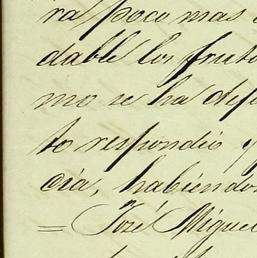 ra poco mas
dable los fruto
mo se ha dispu
to respondió y
cia, habiendo
= José Miguel